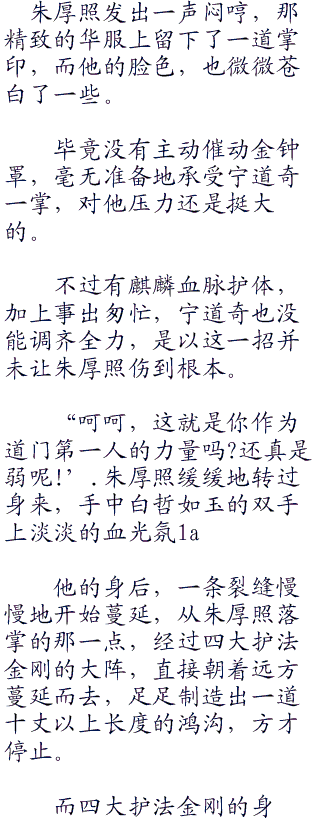 朱厚照发出一声闷哼，那
精致的华服上留下了一道掌
印，而他的脸色，也微微苍
白了一些。
毕竟没有主动催动金钟
罩，毫无准备地承受宁道奇
一掌，对他压力还是挺大
的。
不过有麒麟血脉护体，
加上事出匆忙，宁道奇也没
能调齐全力，是以这一招并
未让朱厚照伤到根本。
“呵呵，这就是你作为
道门第一人的力量吗?还真是
弱呢!’.朱厚照缓缓地转过
身来，手中白哲如玉的双手
上淡淡的血光氛1a
他的身后，一条裂缝慢
慢地开始蔓延，从朱厚照落
掌的那一点，经过四大护法
金刚的大阵，直接朝着远方
蔓延而去，足足制造出一道
十丈以上长度的鸿沟，方才
停止。
而四大护法金刚的身